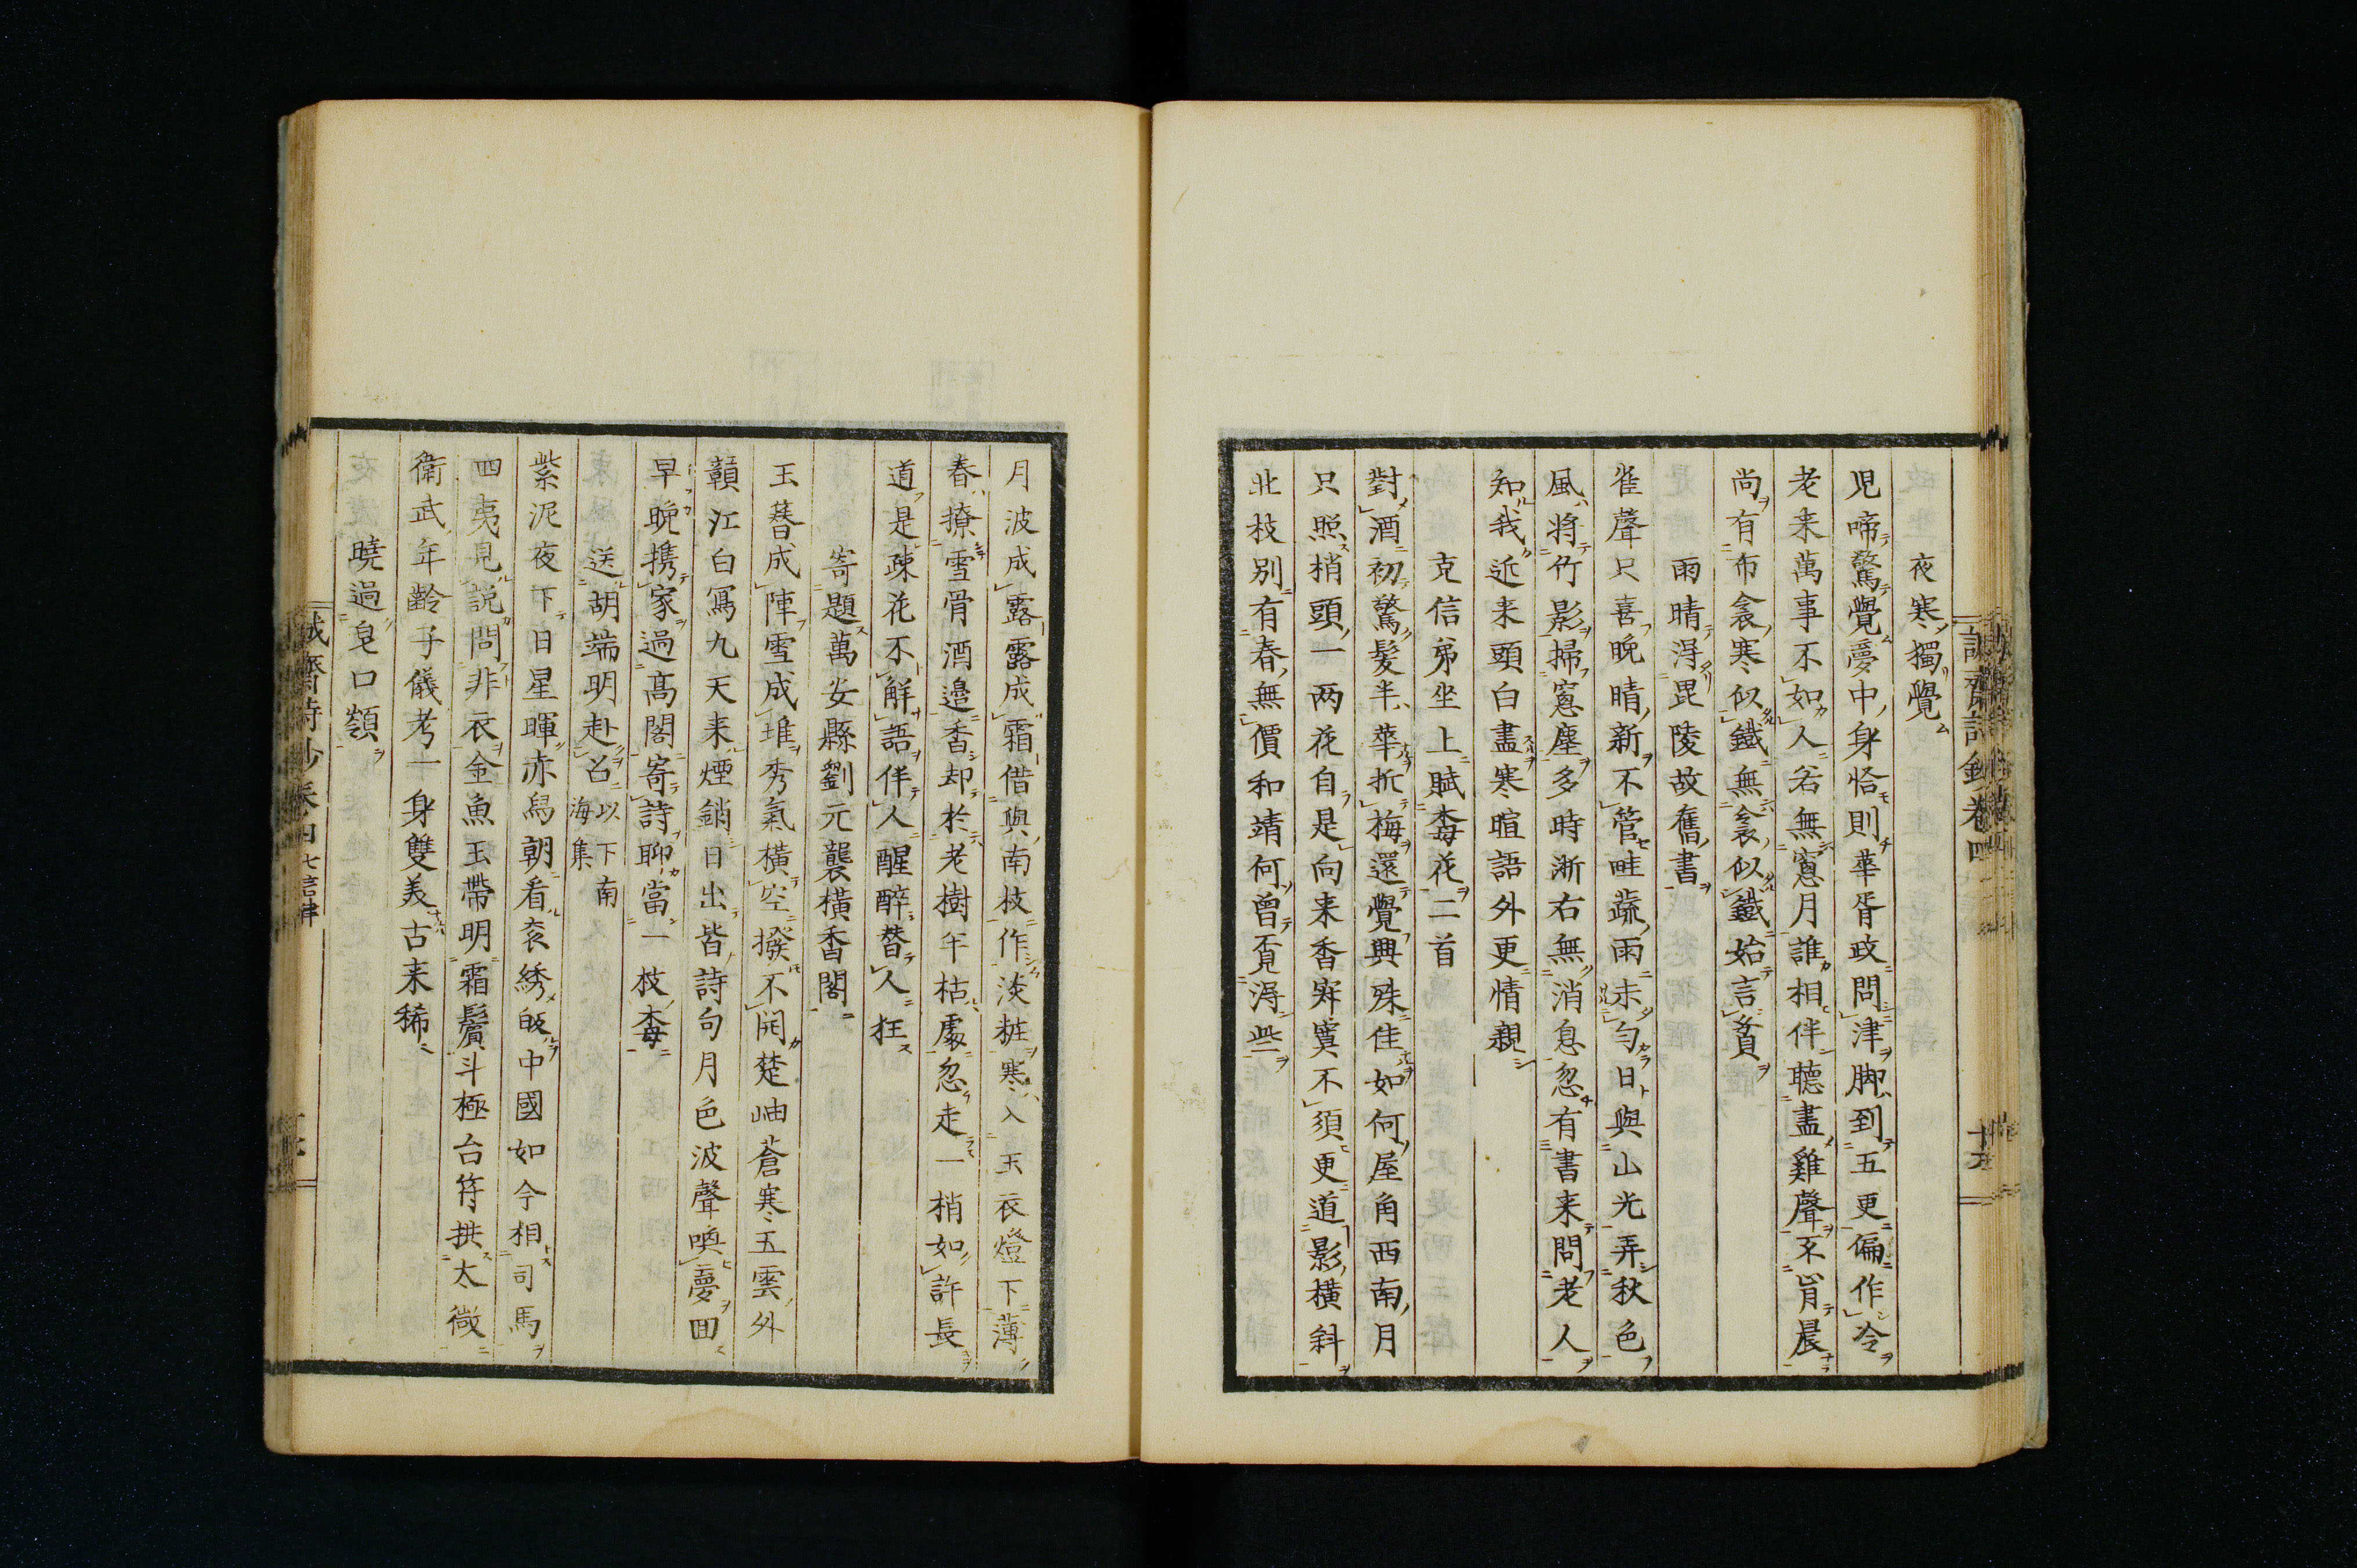 夜寒獨覺
児啼驚覺夢中身恰則華胥政問津脚到五更偏作冷
老来萬事不如人若無窓月誰相伴聽盡雞聲不肯晨
尚有布衾寒似鐵無衾似鐵始言貧
雨晴淂毘陵故舊書
雀聲只喜晩晴新不管畦蔬雨未勻日與山光弄秋色
風将竹影掃窓塵多時淅右無消息忽有書来問老人
知我近来頭白盡寒暄語外更情親
克信弟坐上賦楳花二首
對酒初驚髮半華折梅還覺興殊佳如何屋角西南月
只照梢頭一两花自是向来香寂寞不須更道影横斜
北枝别有春無價和靖何曾覓淂些
月波成露露成霜借與南枝作淡粧寒入玉衣燈下薄
春撩雪骨酒邉香却於老樹年枯處忽走一梢如許長
道是疎花不解語伴人醒醉替人狂
寄題萬安縣劉元襲横香閣
玉䕭成陣雪成堆秀氣横空撥不開楚岫蒼寒五雲外
贛江白冩九天来煙銷日出皆詩句月色波聲喚夢回
早晩携家過髙閣寄詩聊當一枝楳
送胡端明赴召 以下南海集
紫泥夜下日星暉赤舄朝看衮綉皈中國如今相司馬
四夷見説問非衣金魚玉帶明霜鬢斗極台符拱太微
衛武年齡子儀考一身雙美古来稀
曉過皀口嶺